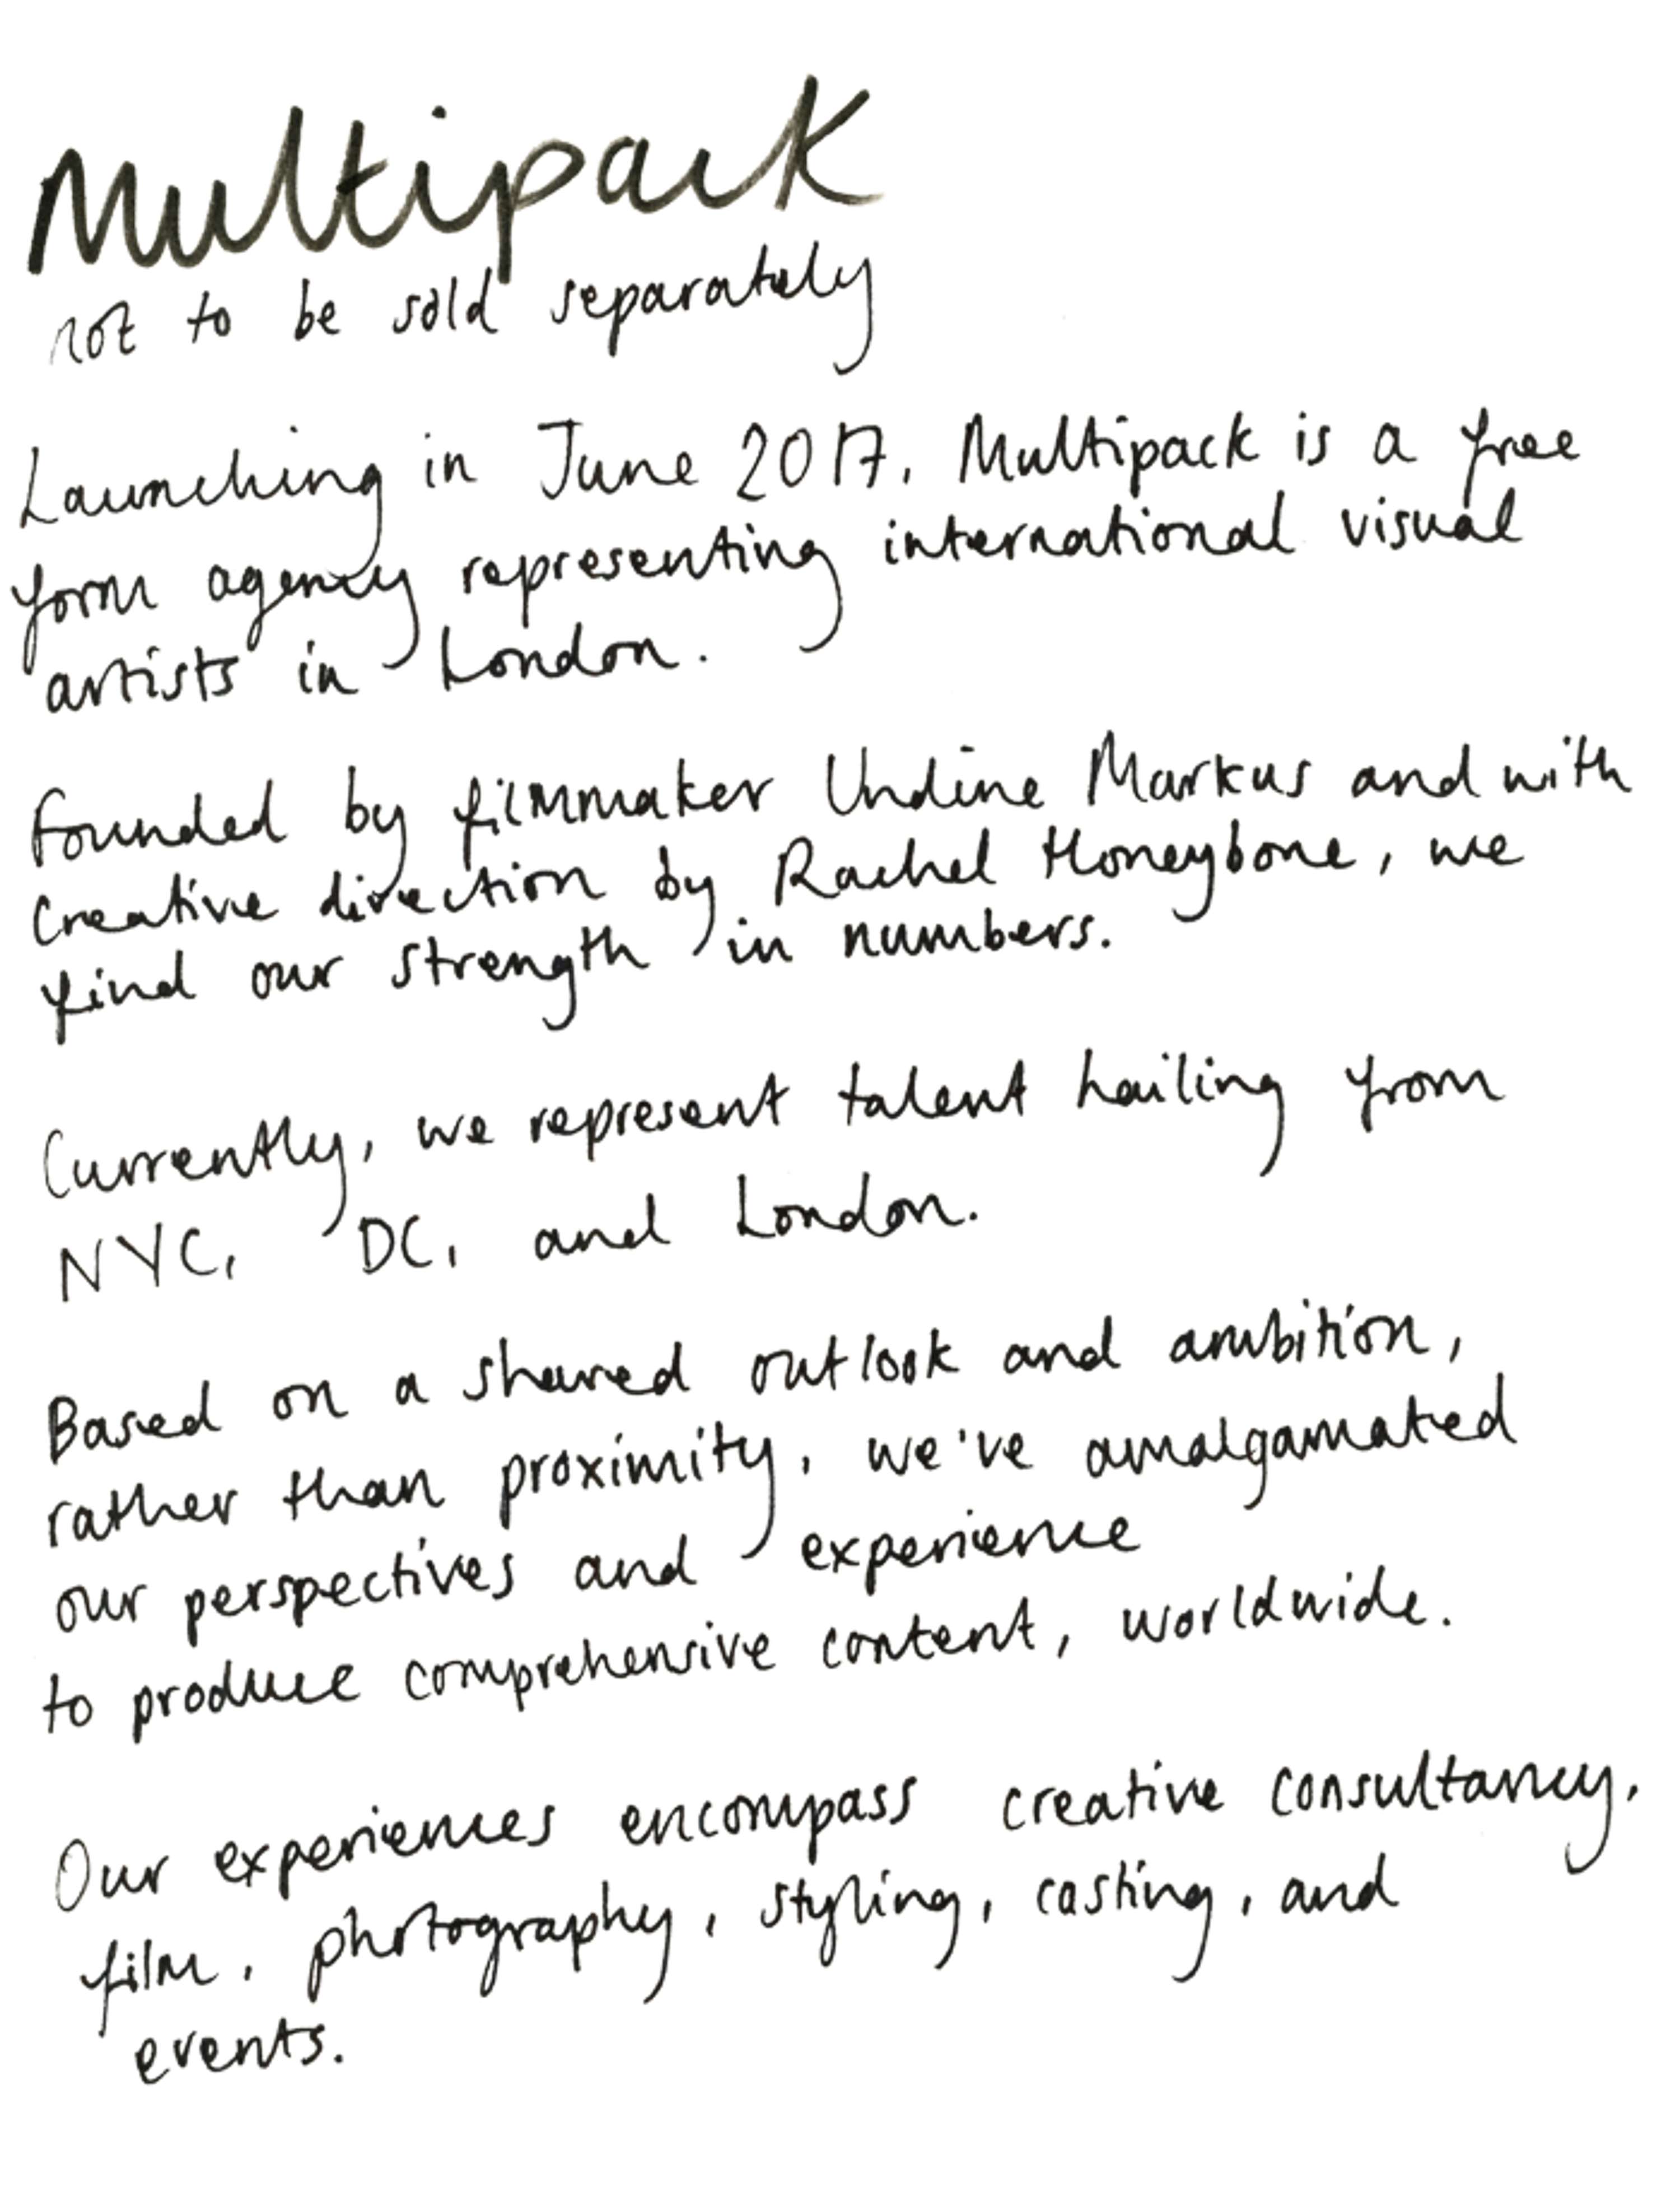 Multipack
not to be sold separately
Launching in June 2017, Multipack is a free
form agency representing international visual
artists in London.
Founded by filmmaker Undine Markus and with
creative direction by Rachel Honeybone, we
find our strength in numbers.
Currently, we represent talent hailing from
NYC, DC, and London.
Based on a shared outlook and ambition,
rather than proximity, we've amalgamated
our perspectives and experience
to produce comprehensive content, worldwide.
Our experiences encompass creative consultancy,
film, photography, styling, casting, and
events.